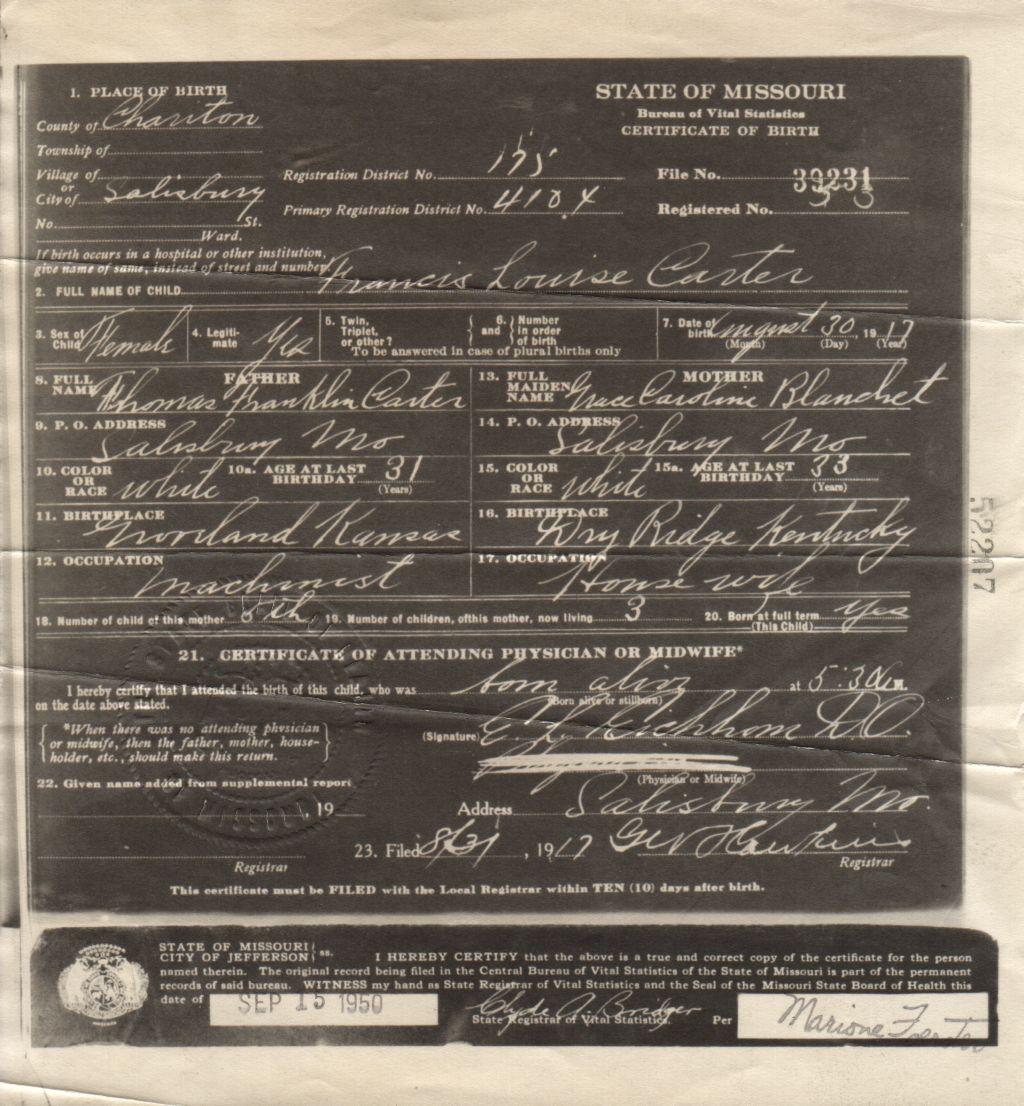 1. PLACE OF BIRTH
County of Chariton
Township of
Village of
or
City of Salisbury
No. St.
Ward.
If birth occurs in a hospital or other institution,
give name of same, instead of street and number.
STATE OF MISSOURI
Bureau of Vital Statistics
CERTIFICATE OF BIRTH
Registration District No. 175
File No. 39231
Primary Registration District No. 4104
Registered No.
2. FULL NAME OF CHILD Francis Louise Carter
3. Sex of Child Female
4. Legitimate Yes
5. Twin, Triplet, or other?
and
6. Number in order of birth
To be answered in case of plural births only
7. Date of birth August 30 1917
(Month) (Day) (Year)
FATHER
8. FULL NAME Thomas Franklin Carter
MOTHER
13. FULL MAIDEN NAME Grace Caroline Blanchet
9. P. O. ADDRESS
Salisbury Mo
14. P. O. ADDRESS
Salisbury Mo
10. COLOR OR RACE White
10a. AGE AT LAST BIRTHDAY 31
(Years)
15. COLOR OR RACE White
15a. AGE AT LAST BIRTHDAY 33
(Years)
11. BIRTHPLACE
Kansas
16. BIRTHPLACE
Dry Ridge Kentucky
12. OCCUPATION
Machinist
17. OCCUPATION
House wife
18. Number of child of this mother
19. Number of children, of this mother, now living 3
20. Born at full term Yes
(This Child)
21. CERTIFICATE OF ATTENDING PHYSICIAN OR MIDWIFE*
I hereby certify that I attended the birth of this child, who was born alive at 5:30 M.
(Born alive or stillborn)
on the date above stated.
*When there was no attending physician
or midwife, then the father, mother, house-
holder, etc., should make this return.
(Signature) E. L. Eichhorn D.O.
(Physician or Midwife)
22. Given name added from supplemental report
19
Address Salisbury Mo.
Registrar
23. Filed 8/31, 1917 Hawkins
Registrar
This certificate must be FILED with the Local Registrar within TEN (10) days after birth.
52207
STATE OF MISSOURI
CITY OF JEFFERSON ss.
I HEREBY CERTIFY that the above is a true and correct copy of the certificate for the person
named therein. The original record being filed in the Central Bureau of Vital Statistics of the State of Missouri is part of the permanent
records of said bureau. WITNESS my hand as State Registrar of Vital Statistics and the Seal of the Missouri State Board of Health this
date of SEP 15 1950
Clyde A. Bridger
State Registrar of Vital Statistics.
Per Marione